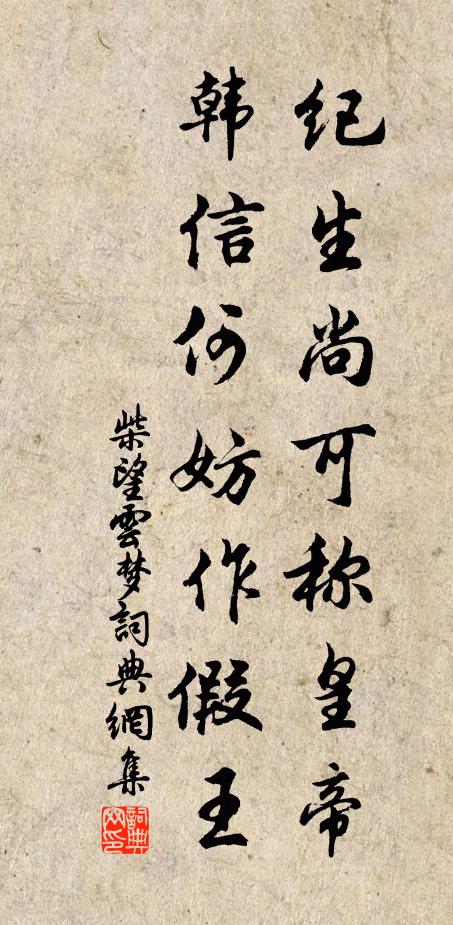 纪生尚可称皇帝
韩信何妨作假王
柴望雲梦詞典網集
詞典
网印